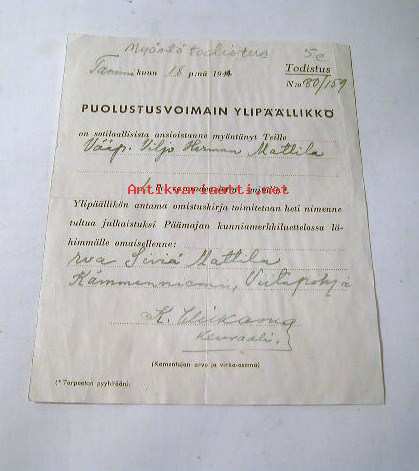 Myöntö todistus 5.e
Tammi kuun 18 p:nä 194
Todistus
N:o 80/159
PUOLUSTUSVOIMAIN YLIPÄÄLLIKKÖ
on sotilaallisista ansioistanne myöntänyt Teille
Vääp. Viljo Herman Mattila
Antikvariaatti.net
Ylipäällikön antama omistuskirja toimitetaan heti nimenne
tultua julkaistuksi Päämajan kunniamerkkiluettelossa lä-
himmälle omaisellenne:
rva Mattila
Kämmenniemi, Viitapohja
K.
Kenraali.
(Komentajan arvo ja virka-asema)
(* Tarpeeton pyyhitään)